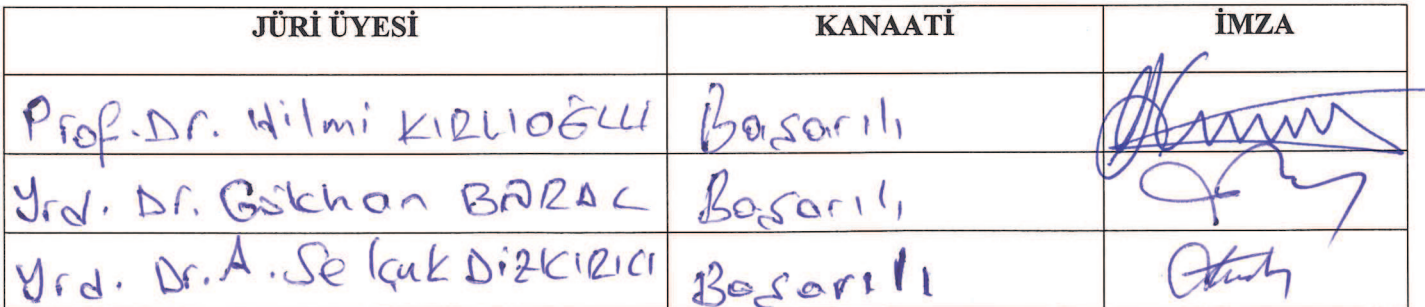 JÜRİ ÜYESİ KANAATİ İMZA
Prof. Dr. Hilmi KIRLIOĞLU Başarılı
Yrd. Dr. Gökhan BARAL Başarılı
Yrd. Dr. A. Selçuk DİZKIRICI Başarılı